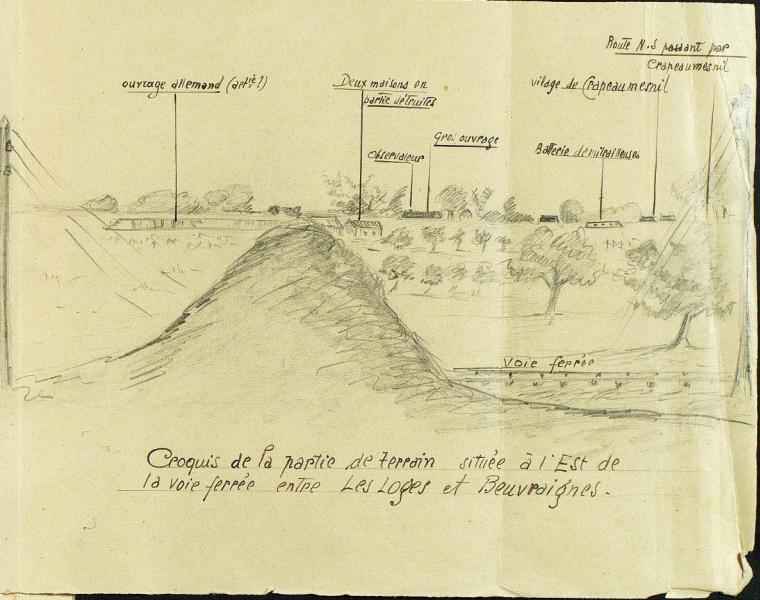 Route N.S passant par
Crapeaumesnil
ouvrage allemand (artie?)
Deux maisons en
partie détruites
vilage de Crapeaumesnil
Gros ouvrage
Observateur
Batterie de mitrailleuses
voie ferrée
Croquis de la partie de terrain située à l'Est de
la voie ferrée entre Les Loges et Beuvraignes.